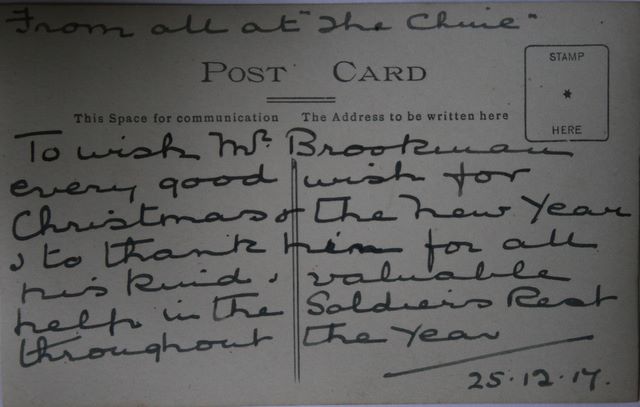 From all at "The Chine"
POST CARD
STAMP
*
HERE
This Space for communication The Address to be written here
To wish Mr. Brookman
every good wish for
Christmas & the New Year
& to thank him for all
his kind & valuable
help in the Soldiers Rest
throughout the Year
25.12.17.